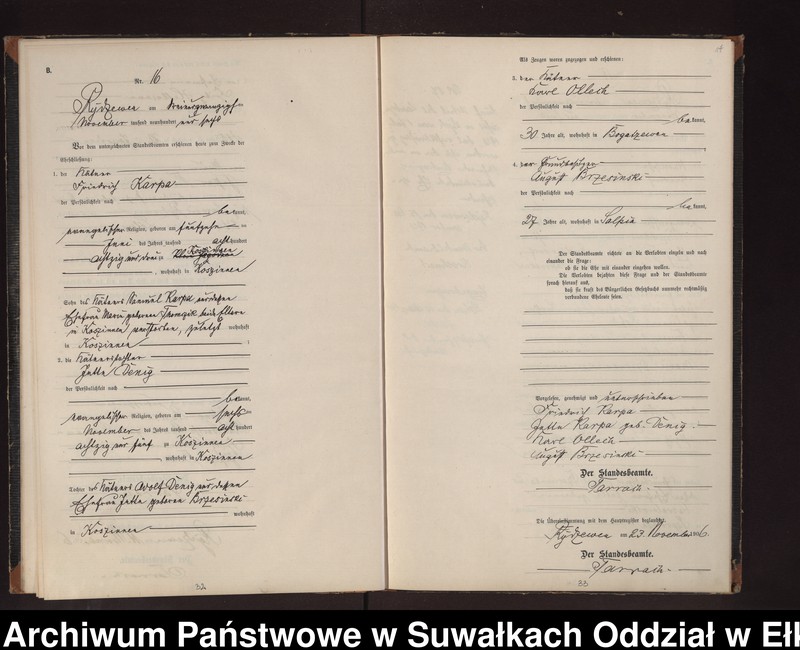 B.
Nr. 16
Rydzewen am dreiundzwanzigsten
November tausend neunhundert und sechs
Vor dem unterzeichneten Standesbeamten erschienen heute zum Zwecke der
Eheschließung:
1. der Kätner
Friedrich Karpa
der Persönlichkeit nach
bekannt,
evangelischer Religion, geboren am fünfzehn
Juni des Jahres tausend achthundert
achtzig und drei zu Koszinnen
, wohnhaft in Koszinnen
Sohn des Kätners Samuel Karpa und dessen
Ehefrau Marie geborenen beide Eltern
in Koszinnen verstorben, zuletzt wohnhaft
in Koszinnen
2. die Kätnertochter
Jette Denig
der Persönlichkeit nach
bekannt,
evangelischer Religion, geboren am sechs
November des Jahres tausend achthundert
achtzig und fünf zu Koszinnen
, wohnhaft in Koszinnen
Tochter des Kätners Adolf Denig und dessen
Ehefrau Jette geborene Brzesinski
wohnhaft
in Koszinnen
32
Als Zeugen waren zugezogen und erschienen:
3. der Kätner
Karl Ollech
der Persönlichkeit nach
bekannt,
30 Jahre alt, wohnhaft in Bogatzewen
4. der Grundbesitzer
August Brzesinski
der Persönlichkeit nach
bekannt,
27 Jahre alt, wohnhaft in Salpia
Der Standesbeamte richtete an die Verlobten einzeln und nach
einander die Frage:
ob sie die Ehe mit einander eingehen wollen.
Die Verlobten bejahten diese Frage und der Standesbeamte
sprach hierauf aus,
daß sie kraft des Bürgerlichen Gesetzbuchs nunmehr rechtmäßig
verbundene Eheleute seien.
Vorgelesen, genehmigt und unterschrieben
Friedrich Karpa
Jette Karpa geb. Denig.
Karl Ollech
August Brzesinski
Der Standesbeamte.
Tarrach.
Die Übereinstimmung mit dem Hauptregister beglaubigt.
Rydzewen am 23. November 1906.
Der Standesbeamte.
Tarrach.
33
Archiwum Państwowe w Suwałkach Oddział w Ełk